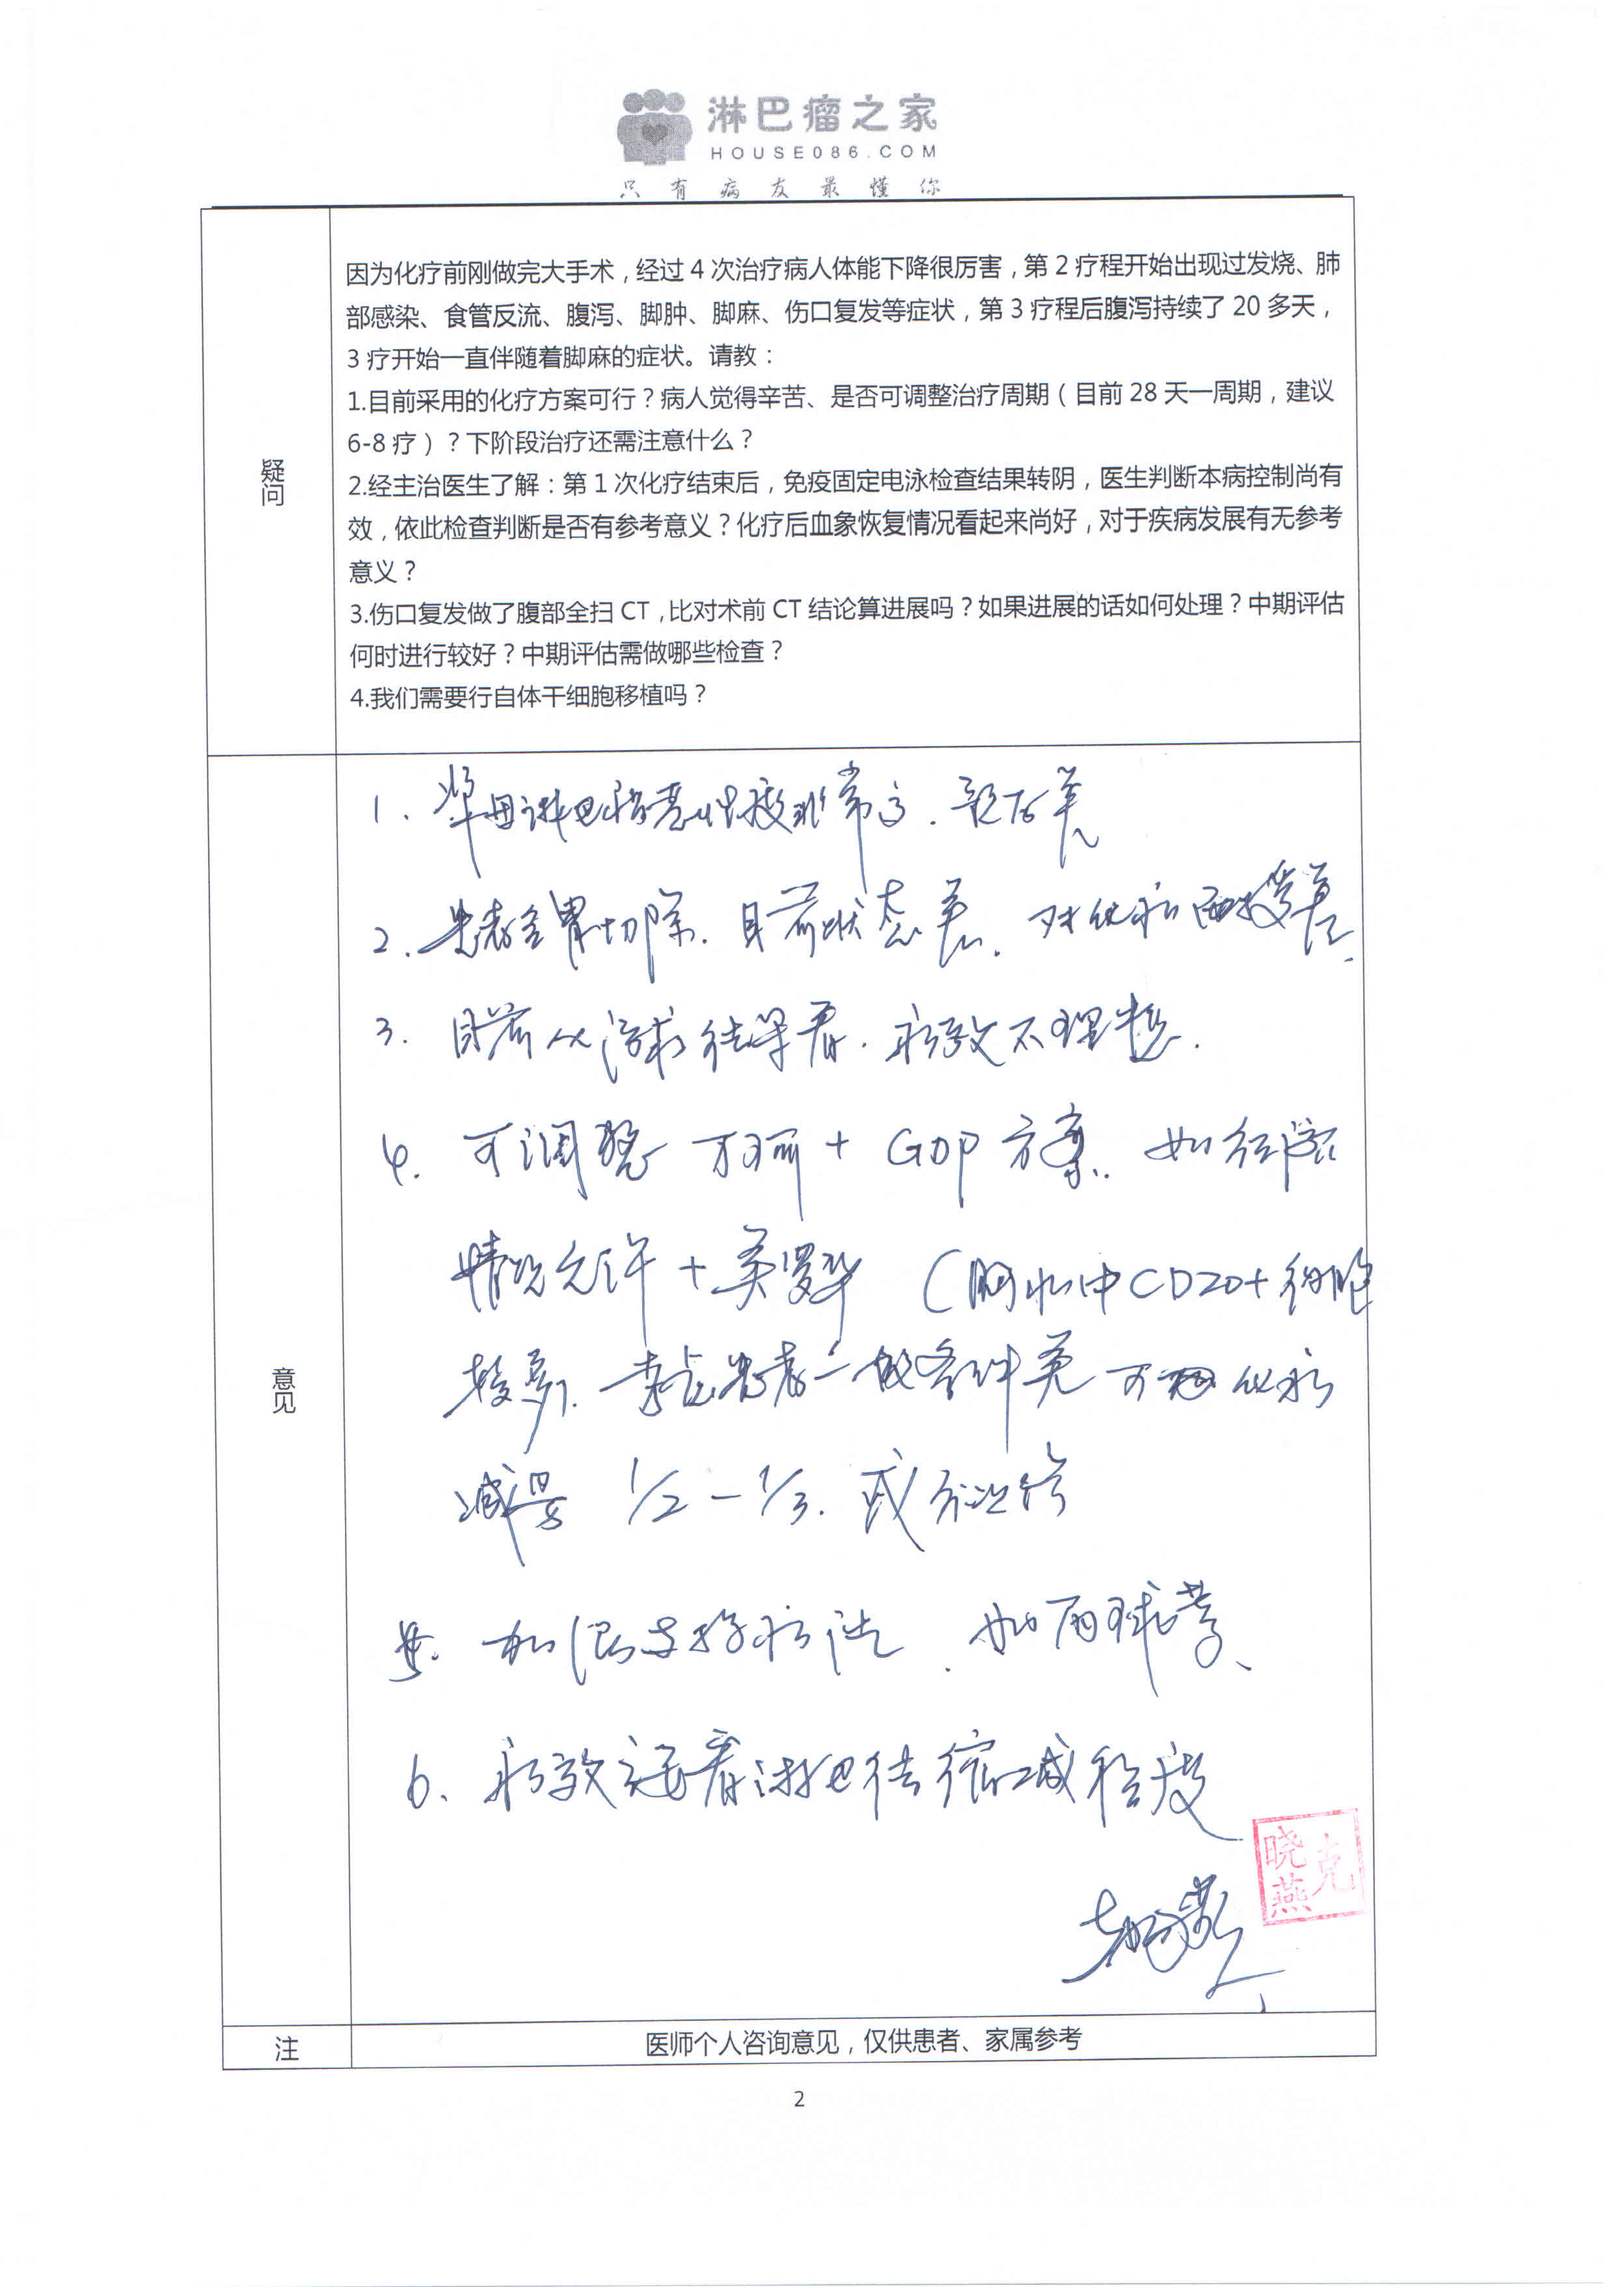 淋巴瘤之家
HOUSE086.COM
只有病友最懂你
因为化疗前刚做完大手术，经过 4 次治疗病人体能下降很厉害，第 2 疗程开始出现过发烧、肺
部感染、食管反流、腹泻、脚肿、脚麻、伤口复发等症状，第 3 疗程后腹泻持续了 20 多天，
3 疗开始一直伴随着脚麻的症状。请教：
1.目前采用的化疗方案可行？病人觉得辛苦、是否可调整治疗周期（目前 28 天一周期，建议
6-8 疗）？下阶段治疗还需注意什么？
疑问
2.经主治医生了解：第 1 次化疗结束后，免疫固定电泳检查结果转阴，医生判断本病控制尚有
效，依此检查判断是否有参考意义？化疗后血象恢复情况看起来尚好，对于疾病发展有无参考
意义？
3.伤口复发做了腹部全扫 CT，比对术前 CT 结论算进展吗？如果进展的话如何处理？中期评估
何时进行较好？中期评估需做哪些检查？
4.我们需要行自体干细胞移植吗？
1. 浆母淋巴瘤恶性度非常高. 预后差
2. 患者全胃切除. 目前状态差. 对化疗耐受差.
3. 目前从 结果看. 疗效不理想.
4. 可调整 万珂 + GDP 方案. 如经济
情况允许 + 美罗华 (胸水中 CD20+ 细胞
意见
较多). 考虑患者一般条件差 可 化疗
减量 1/2 - 1/3. 或
5. 加强支持疗法. 如丙球等、
6、疗效主要看淋巴结缩减程度
克晓燕
注
医师个人咨询意见，仅供患者、家属参考
2